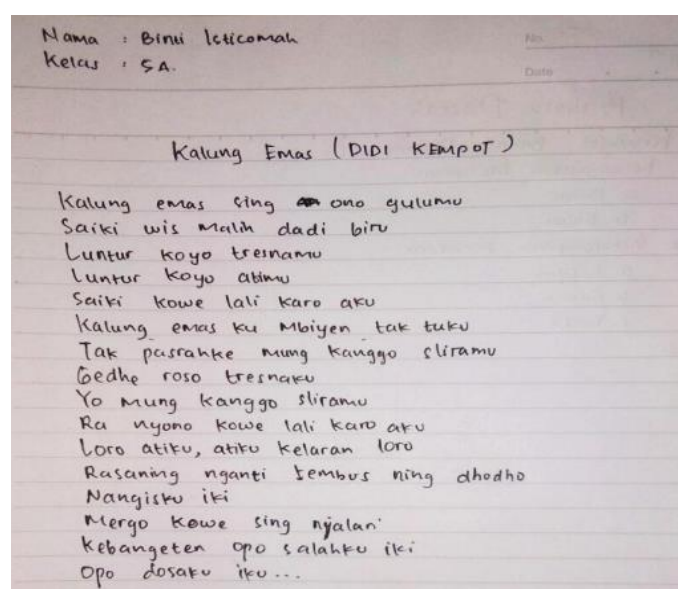 Nama : Binti Isticomah
Kelas : 5A.
No.
Date
Kalung Emas (DIDI KEMPOT)
Kalung emas sing ono gulumu
Saiki wis malih dadi biru
Luntur koyo tresnamu
Luntur koyo atimu
Saiki kowe lali karo aku
Kalung emas ku Mbiyen tak tuku
Tak pasrahke mung kanggo sliramu
Gedhe roso tresnaku
Yo mung kanggo sliramu
Ra nyono kowe lali karo aku
Loro atiku, atiku kelaran loro
Rasaning nganti tembus ning dhodho
Nangisku iki
Mergo kowe sing njalari
Kebangeten opo salahku iki
Opo dosaku iku...